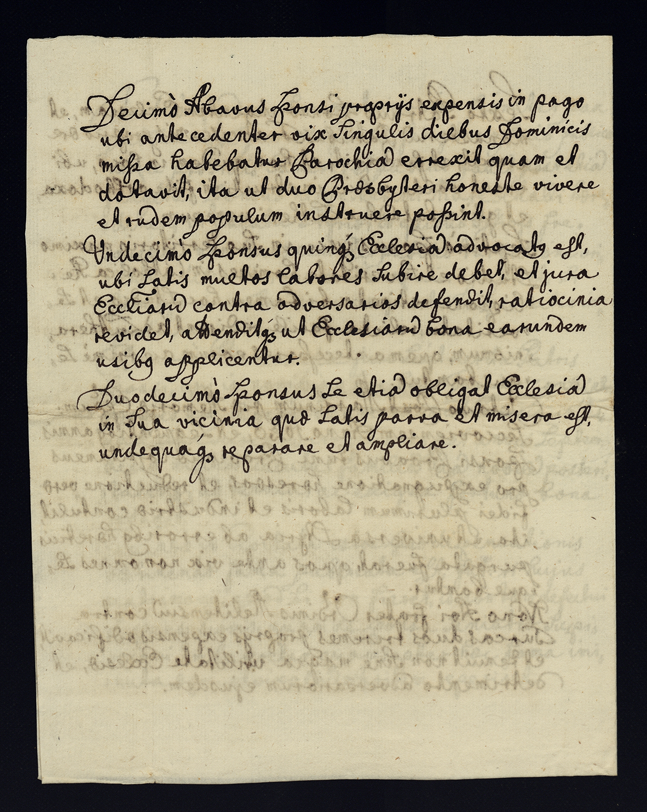 Decimò Abavus sponsi proprijs expensis in pago
ubi antecedenter vix singulis diebus Dominicis
missa habebatur Parochiā errexit quam et
dotavit, ita ut duo Præsbyteri honeste vivere
et rudem populum instruere possint.
Undecimò sponsus quinq; Ecclesiā advocatq est,
ubi satis multos labores subire debet, et jura
Eccliarū contra adversarios defendit, ratiocinia
revidet, attenditq; ut Ecclesiarū bona earundem
usibq applicentur.
Duodecimò sponsus se etiā obligat Ecclesiā
in sua vicinia quæ satis parva et misera est,
undequaq; reparare et ampliare.